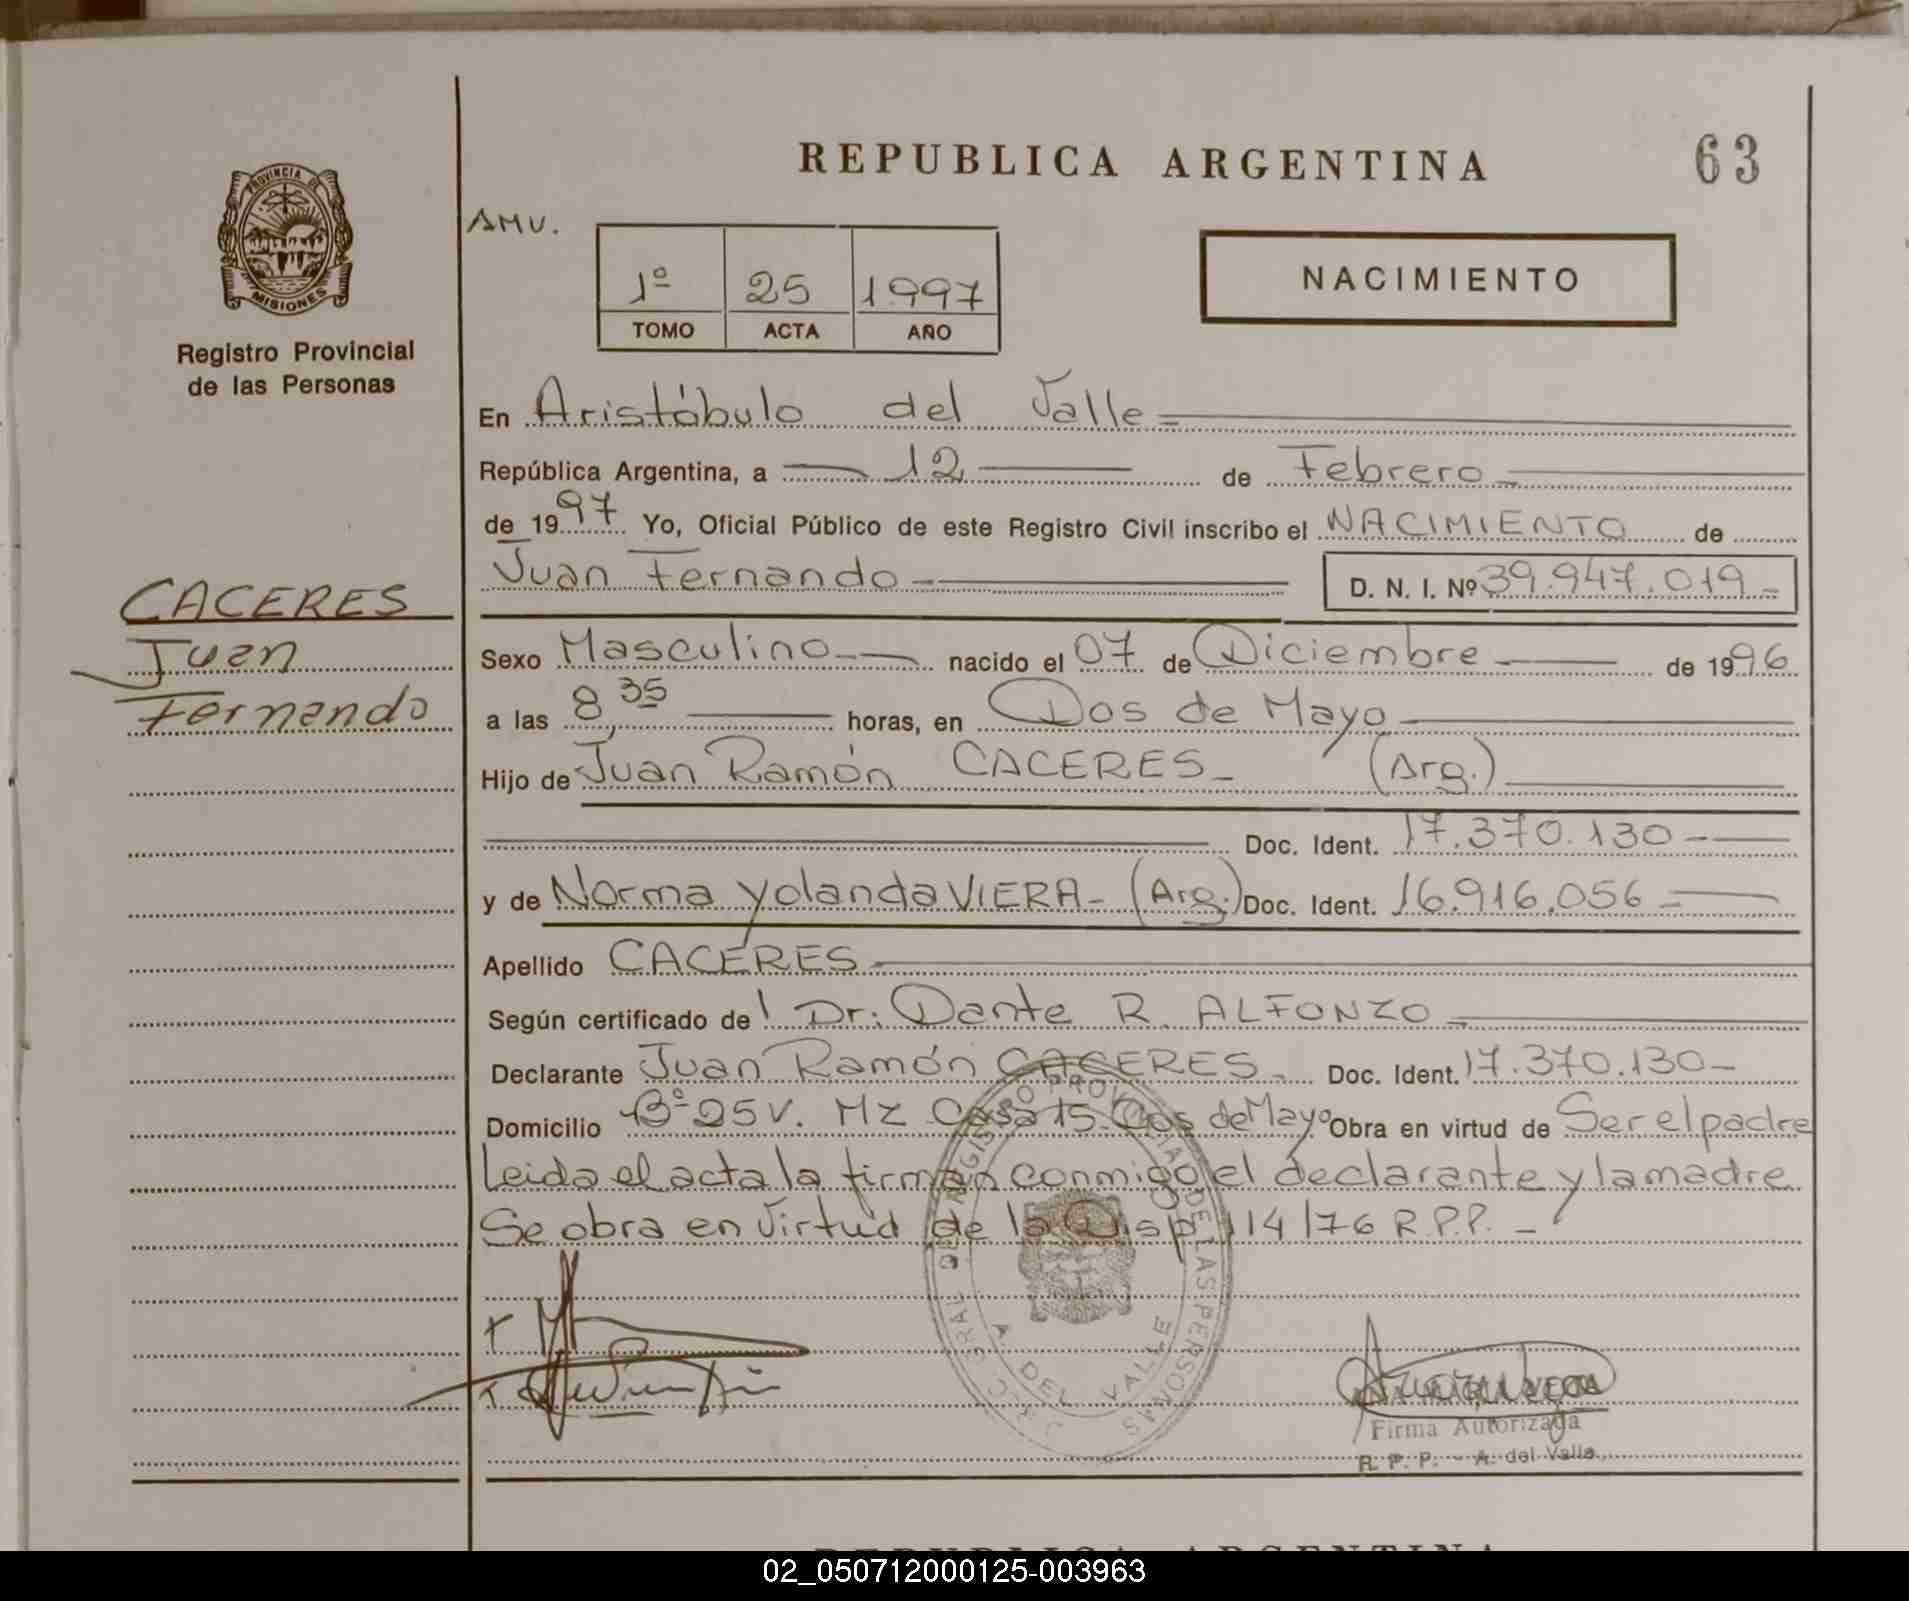 REPUBLICA ARGENTINA
63
PROVINCIA DE
MISIONES
Registro Provincial
de las Personas
AMV.
1º 25 1997
TOMO ACTA AÑO
NACIMIENTO
En Aristóbulo del Valle
República Argentina, a 12 de Febrero
de 1997 Yo, Oficial Público de este Registro Civil inscribo el NACIMIENTO de
Juan Fernando D. N. I. Nº 39.947.019
CACERES
Juan
Fernando
Sexo Masculino nacido el 07 de Diciembre de 1996
a las 8,35 horas, en Dos de Mayo
Hijo de Juan Ramón CACERES (Arg.)
Doc. Ident. 17.370.130
y de Norma Yolanda VIERA (Arg.) Doc. Ident. 16.916.056
Apellido CACERES
Según certificado del Dr. Dante R. ALFONZO
Declarante Juan Ramón CACERES Doc. Ident. 17.370.130
Domicilio Bº 25 V. MZ Casa 15 Dos de Mayo Obra en virtud de Ser el padre
Leida el acta la firman conmigo el declarante y la madre
Se obra en Virtud de la Disp 114/76 R.P.P.
A. DEL VALLE
DE LAS PERSONAS
Firma Autorizada
R. P. P. - A. del Valle
REPUBLICA ARGENTINA
02_050712000125-003963